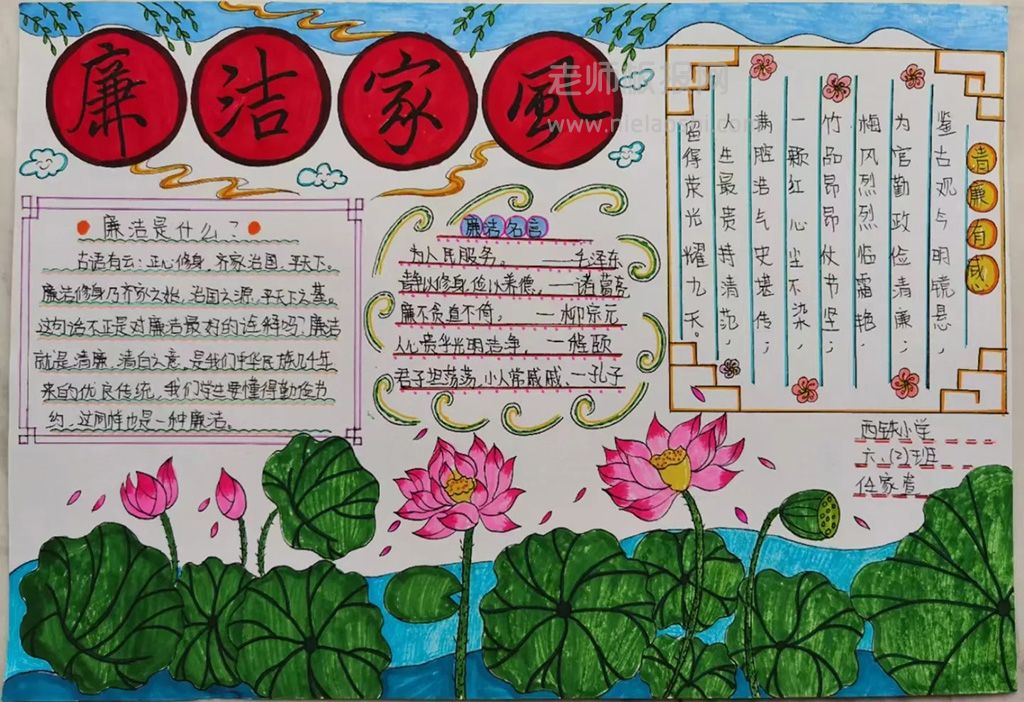 廉洁家風
老师板报网
廉洁是什么？
古语有云：正心修身，齐家治国，平天下。
廉洁修身乃齐家之始，治国之源，平天下之基。
这句话不正是对廉洁最好的诠释吗？廉洁
就是清廉，清白之意，是我们中华民族几千年
来的优良传统，我们学生要懂得勤俭节
约，这同样也是一种廉洁。
廉洁名言
为人民服务。——毛泽东
静以修身，俭以养德，——诸葛亮
廉不贪直不倚，——柳宗元
人心贵乎光明洁净，
君子坦荡荡，小人常戚戚、——孔子
清廉有感
鉴古观今明镜悬，
为官勤政俭清廉；
梅风烈烈临霜艳，
竹品昂昂仗节坚；
一颗红心尘不染，
满腔浩气史堪传；
人生最贵持清范，
留得荣光耀九天。
西铁小学
六、(2)班
任家